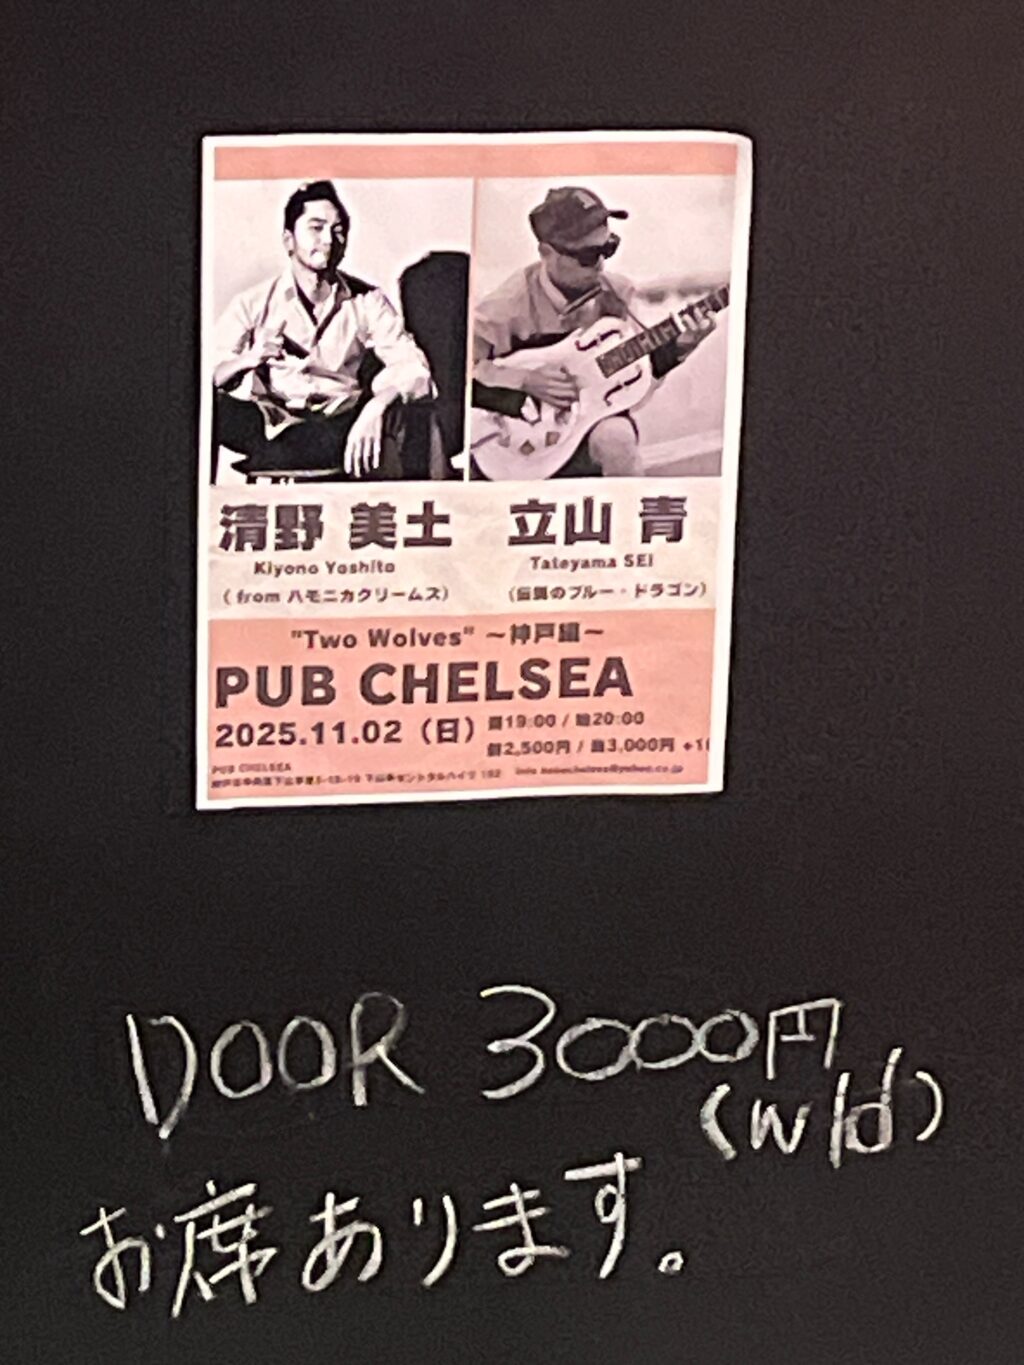 清野 美土
立山 青
Kiyono Yoshito
Tateyama SEI
( from ハモニカクリームズ)
(伝説のブルー・ドラゴン)
"Two Wolves" ～神戸編～
PUB CHELSEA
2025.11.02 (日)
開19:00 / 始20:00
前2,500円 / 当3,000円 +1
PUB CHELSEA
DOOR 3000円
(w/d)
お席あります。